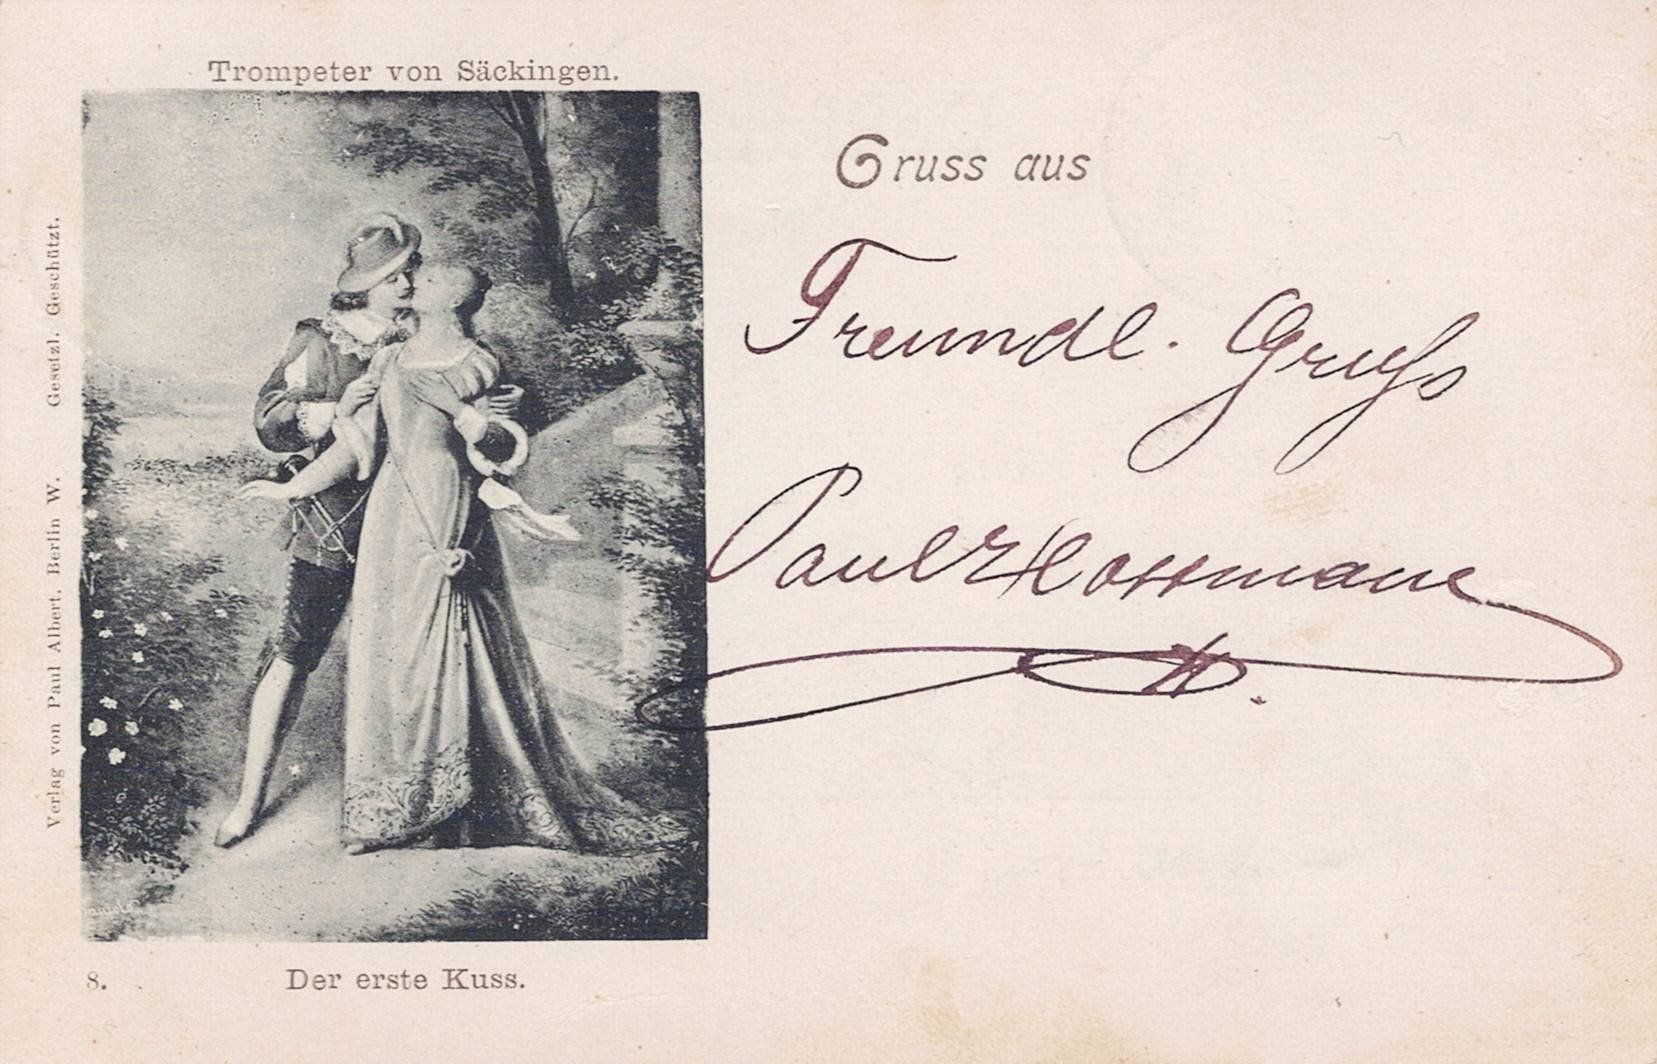 Trompeter von Säckingen.
Verlag von Paul Albert. Berlin W. Gesetzl. Geschützt.
Gruss aus
Freundl. Gruß
Paul Hoffmann
8. Der erste Kuss.